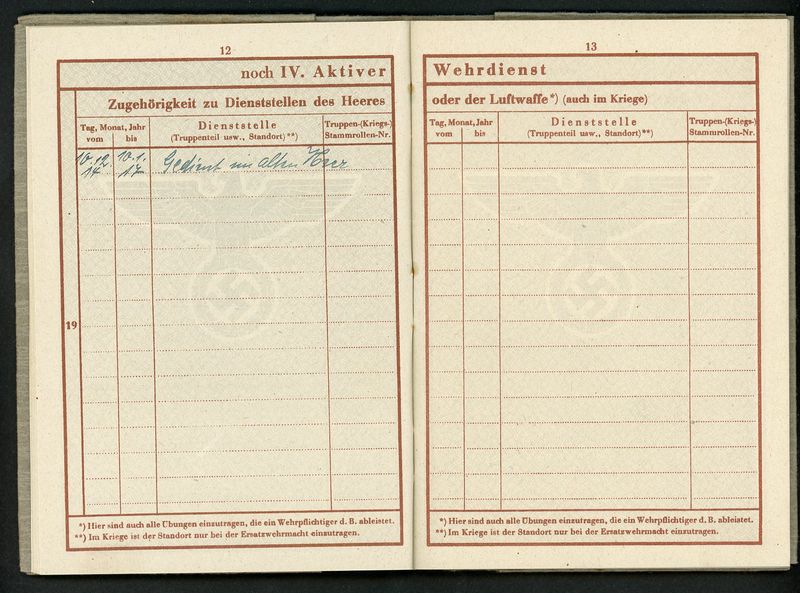 12
noch IV. Aktiver
Zugehörigkeit zu Dienststellen des Heeres
Tag, Monat, Jahr
vom bis
Dienststelle
(Truppenteil usw., Standort)**)
Truppen-(Kriegs-)
Stammrollen-Nr.
10.12. 10.1.
14 17 Gedient im alten Heer
19
*) Hier sind auch alle Übungen einzutragen, die ein Wehrpflichtiger d. B. ableistet.
**) Im Kriege ist der Standort nur bei der Ersatzwehrmacht einzutragen.
13
Wehrdienst
oder der Luftwaffe*) (auch im Kriege)
Tag, Monat, Jahr
vom bis
Dienststelle
(Truppenteil usw., Standort)**)
Truppen-(Kriegs-)
Stammrollen-Nr.
*) Hier sind auch alle Übungen einzutragen, die ein Wehrpflichtiger d. B. ableistet.
**) Im Kriege ist der Standort nur bei der Ersatzwehrmacht einzutragen.